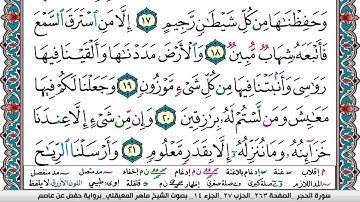 وَحَفِظْنَٰهَا مِن كُلِّ شَيْطَٰنٍ رَّجِيمٍ ١٧ إِلَّا مَنِ ٱسْتَرَقَ ٱلسَّمْعَ
فَأَتْبَعَهُۥ شِهَابٌ مُّبِينٌ ١٨ وَٱلْأَرْضَ مَدَدْنَٰهَا وَأَلْقَيْنَا فِيهَا
رَوَٰسِىَ وَأَنۢبَتْنَا فِيهَا مِن كُلِّ شَىْءٍ مَّوْزُونٍ ١٩ وَجَعَلْنَا لَكُمْ فِيهَا
مَعَٰيِشَ وَمَن لَّسْتُمْ لَهُۥ بِرَٰزِقِينَ ٢٠ وَإِن مِّن شَىْءٍ إِلَّا عِندَنَا
خَزَآئِنُهُۥ وَمَا نُنَزِّلُهُۥٓ إِلَّا بِقَدَرٍ مَّعْلُومٍ ٢١ وَأَرْسَلْنَا ٱلرِّيَٰحَ
سورة الحجر الصفحة ٢٦٣ الجزء ٢٧ الجزء ١٤ بصوت الشيخ ماهر المعيقلي برواية حفص عن عاصم